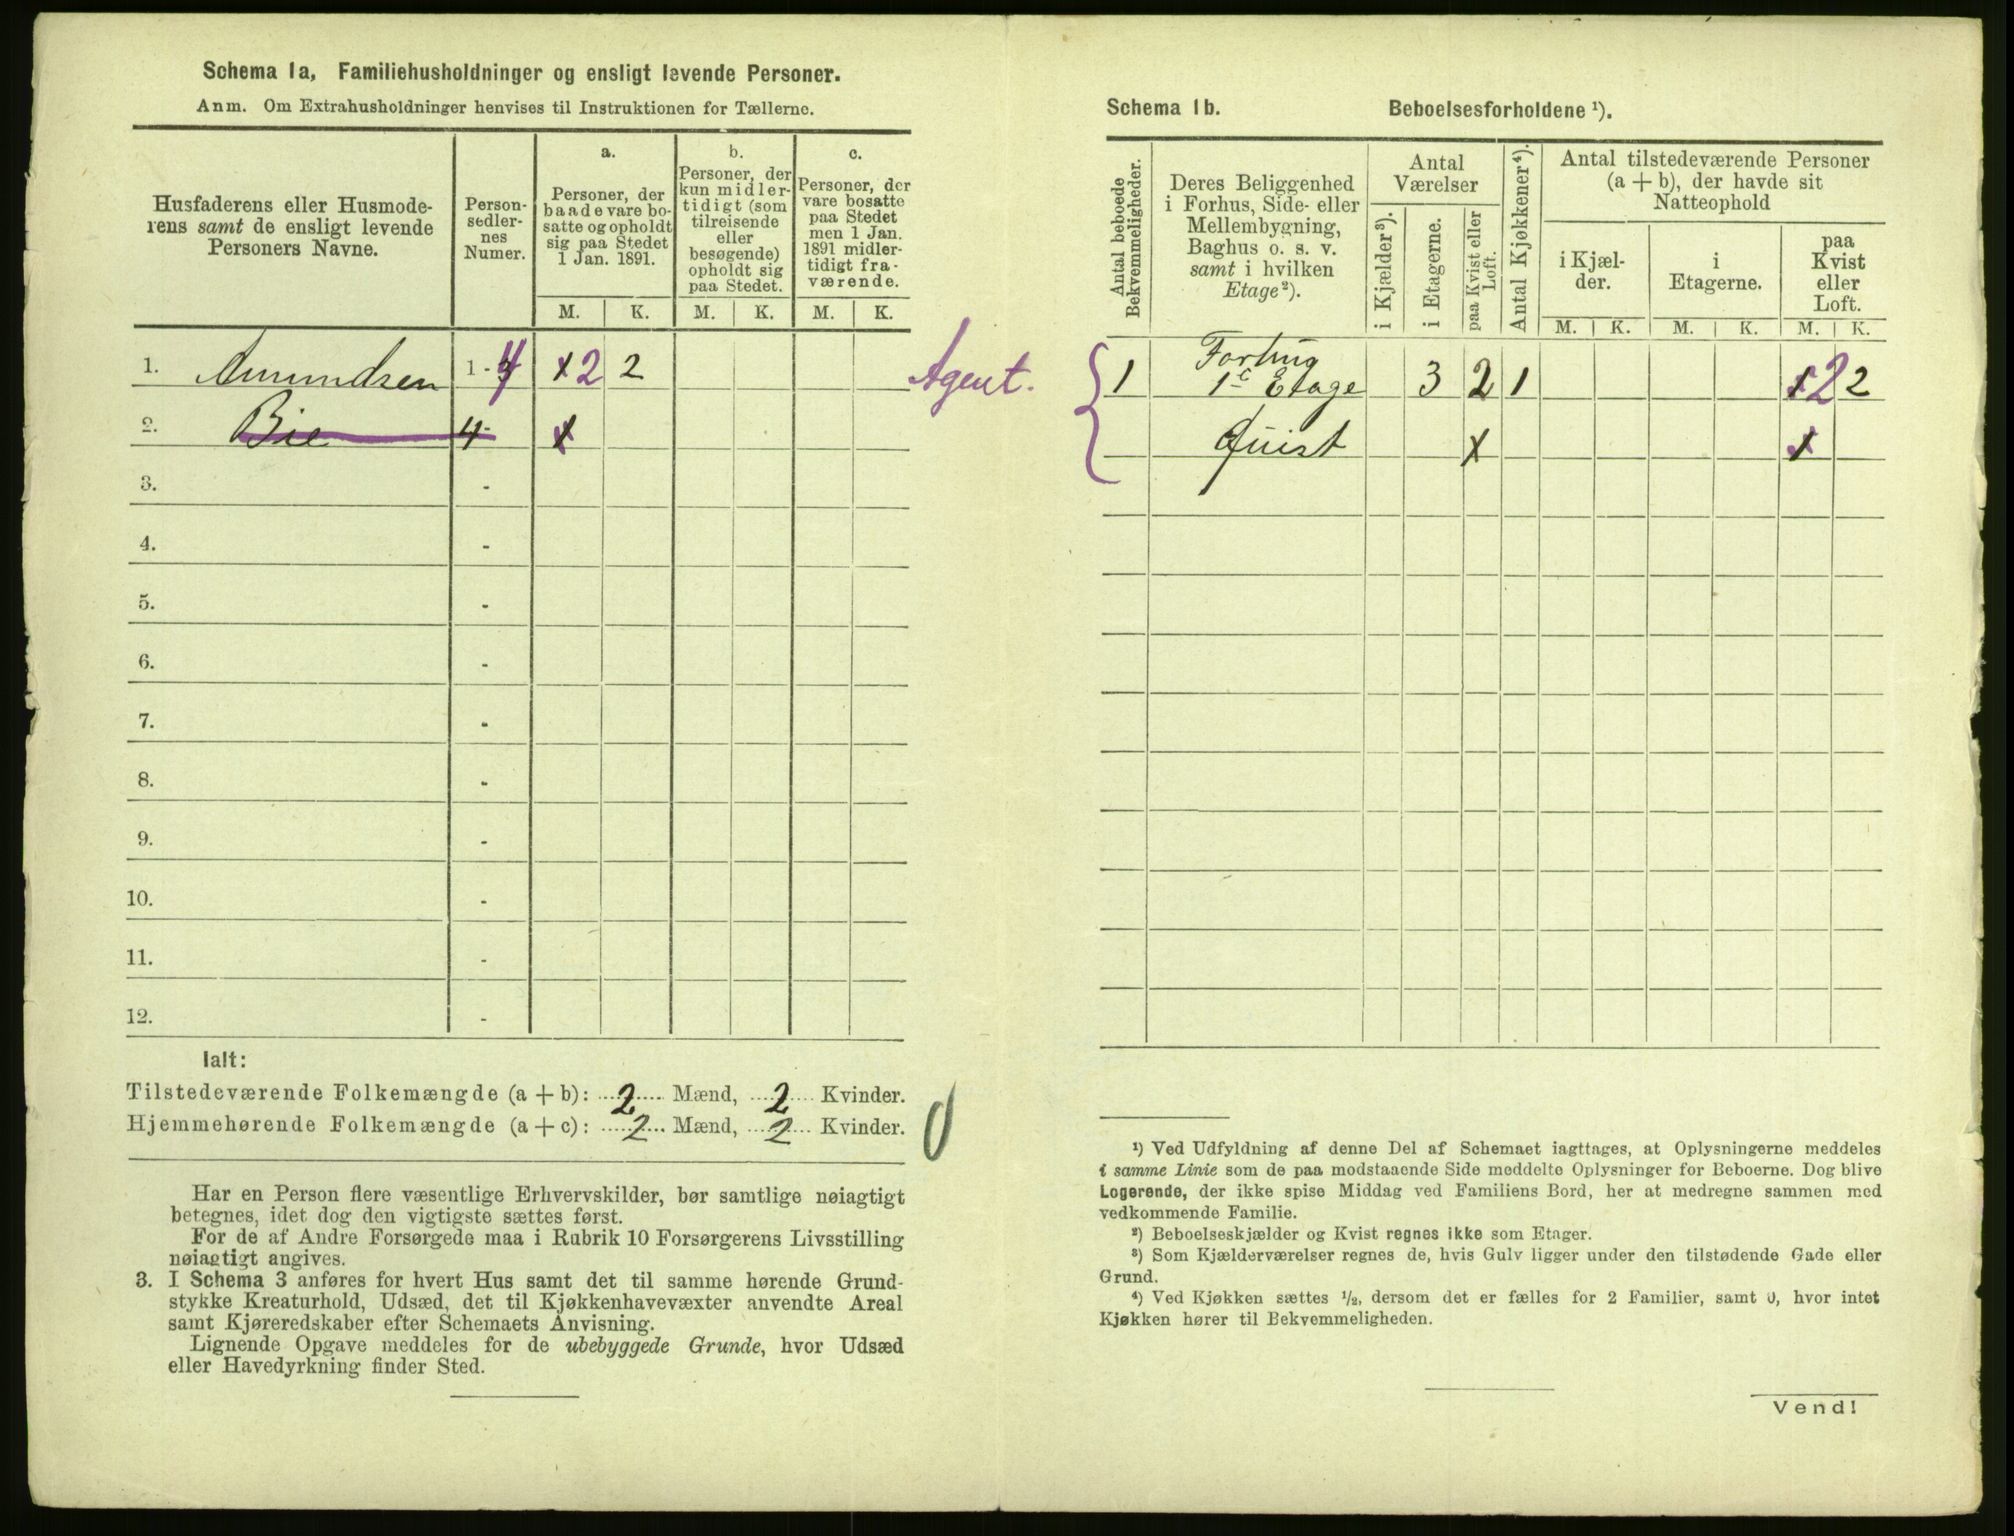 Schema 1a, Familiehusholdninger og ensligt levende Personer.
Anm. Om Extrahusholdninger henvises til Instruktionen for Tællerne.
Husfaderens eller Husmode-
rens samt de ensligt levende
Personers Navne.
Person-
sedler-
nes
Numer.
a.
Personer, der
baade vare bo-
satte og opholdt
sig paa Stedet
1 Jan. 1891.
b.
Personer, der
kun midler-
tidigt (som
tilreisende
eller
besøgende)
opholdt sig
paa Stedet.
c.
Personer, der
vare bosatte
paa Stedet
men 1 Jan.
1891 midler-
tidigt fra-
værende.
M. K. M. K. M. K.
1. Amundsen 1 - 4 x 2 2 Agent.
2. Bie 4 - x
3. -
4. -
5. -
6. -
7. -
8. -
9. -
10. -
11. -
12. -
Ialt:
Tilstedeværende Folkemængde (a + b): 2 Mænd, 2 Kvinder.
Hjemmehørende Folkemængde (a + c): 2 Mænd, 2 Kvinder.
0
Har en Person flere væsentlige Erhvervskilder, bør samtlige nøiagtigt
betegnes, idet dog den vigtigste sættes først.
For de af Andre Forsørgede maa i Rubrik 10 Forsørgerens Livsstilling
nøiagtigt angives.
3. I Schema 3 anføres for hvert Hus samt det til samme hørende Grund-
stykke Kreaturhold, Udsæd, det til Kjøkkenhavevæxter anvendte Areal
samt Kjøreredskaber efter Schemaets Anvisning.
Lignende Opgave meddeles for de ubebyggede Grunde, hvor Udsæd
eller Havedyrkning finder Sted.
Schema 1b. Beboelsesforholdene ¹).
Antal beboede
Bekvemmeligheder.
Deres Beliggenhed
i Forhus, Side- eller
Mellembygning,
Baghus o. s. v.
samt i hvilken
Etage²).
Antal
Værelser
i Kjælder³).
i Etagerne.
paa Kvist eller
Loft.
Antal Kjøkkener⁴).
Antal tilstedeværende Personer
(a + b), der havde sit
Natteophold
i Kjæl-
der.
i
Etagerne.
paa
Kvist
eller
Loft.
M. K. M. K. M. K.
1 1 Etage 3 2 1 x 2 2
Quist x x
¹) Ved Udfyldning af denne Del af Schemaet iagttages, at Oplysningerne meddeles
i samme Linie som de paa modstaaende Side meddelte Oplysninger for Beboerne. Dog blive
Logerende, der ikke spise Middag ved Familiens Bord, her at medregne sammen med
vedkommende Familie.
²) Beboelseskjælder og Kvist regnes ikke som Etager.
³) Som Kjælderværelser regnes de, hvis Gulv ligger under den tilstødende Gade eller
Grund.
⁴) Ved Kjøkken sættes ¹/₂, dersom det er fælles for 2 Familier, samt 0, hvor intet
Kjøkken hører til Bekvemmeligheden.
Vend!